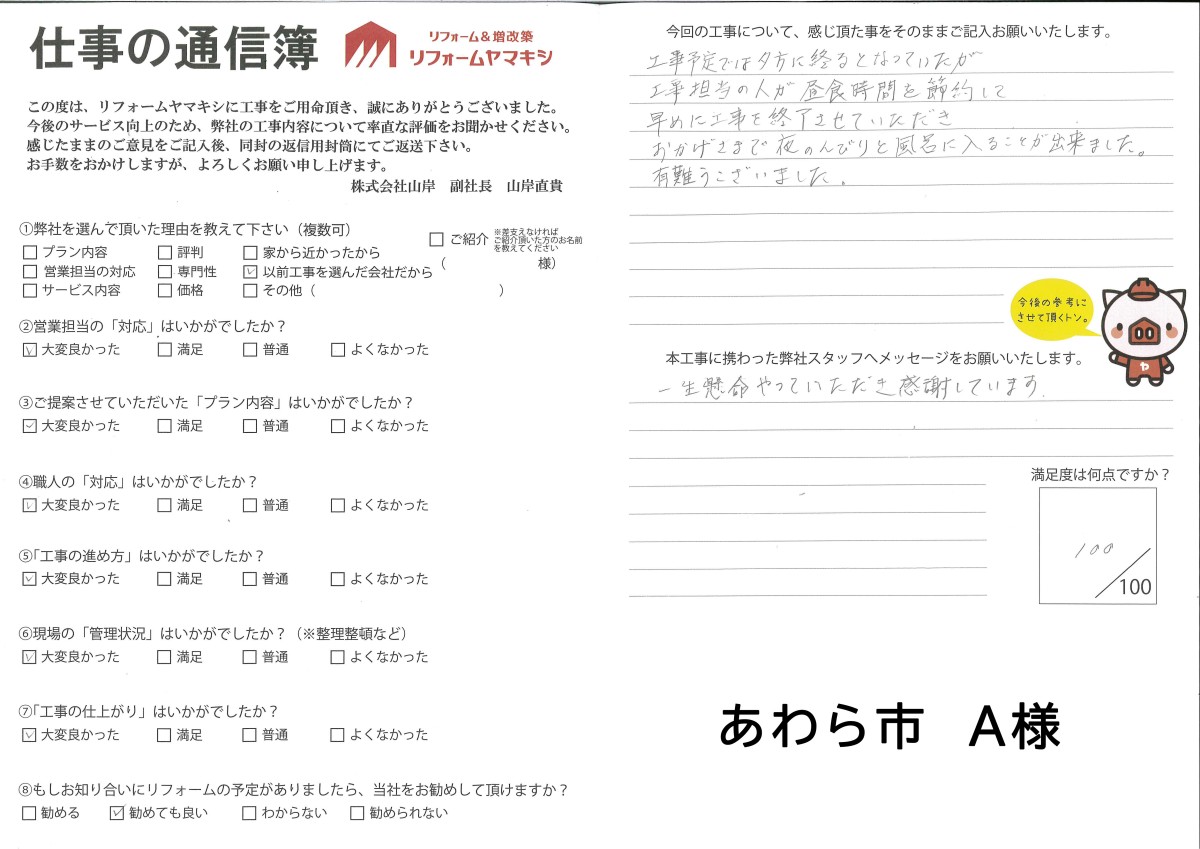 仕事の通信簿
リフォーム&増改築
リフォームヤマキシ
この度は、リフォームヤマキシに工事をご用命頂き、誠にありがとうございました。
今後のサービス向上のため、弊社の工事内容について率直な評価をお聞かせください。
感じたままのご意見をご記入後、同封の返信用封筒にてご返送下さい。
お手数をおかけしますが、よろしくお願い申し上げます。
株式会社山岸 副社長 山岸直貴
①弊社を選んで頂いた理由を教えて下さい（複数可）
□ プラン内容 □ 評判 □ 家から近かったから
□ 営業担当の対応 □ 専門性 ☑ 以前工事を選んだ会社だから
□ サービス内容 □ 価格 □ その他（ ）
□ ご紹介 ※差支えなければ
ご紹介頂いた方のお名前
を教えてください
（ 様）
②営業担当の「対応」はいかがでしたか？
☑ 大変良かった □ 満足 □ 普通 □ よくなかった
③ご提案させていただいた「プラン内容」はいかがでしたか？
☑ 大変良かった □ 満足 □ 普通 □ よくなかった
④職人の「対応」はいかがでしたか？
☑ 大変良かった □ 満足 □ 普通 □ よくなかった
⑤「工事の進め方」はいかがでしたか？
☑ 大変良かった □ 満足 □ 普通 □ よくなかった
⑥現場の「管理状況」はいかがでしたか？（※整理整頓など）
☑ 大変良かった □ 満足 □ 普通 □ よくなかった
⑦「工事の仕上がり」はいかがでしたか？
☑ 大変良かった □ 満足 □ 普通 □ よくなかった
⑧もしお知り合いにリフォームの予定がありましたら、当社をお勧めして頂けますか？
□ 勧める ☑ 勧めても良い □ わからない □ 勧められない
今回の工事について、感じ頂た事をそのままご記入お願いいたします。
工事予定では夕方に終るとなっていたが
工事担当の人が昼食時間を節約して
早めに工事を終了させていただき
おかげさまで夜のんびりと風呂に入ることが出来ました。
有難うございました。
今後の参考に
させて頂くトン。
ヤ
本工事に携わった弊社スタッフへメッセージをお願いいたします。
一生懸命やっていただき感謝しています.
満足度は何点ですか？
100
/100
あわら市 A様